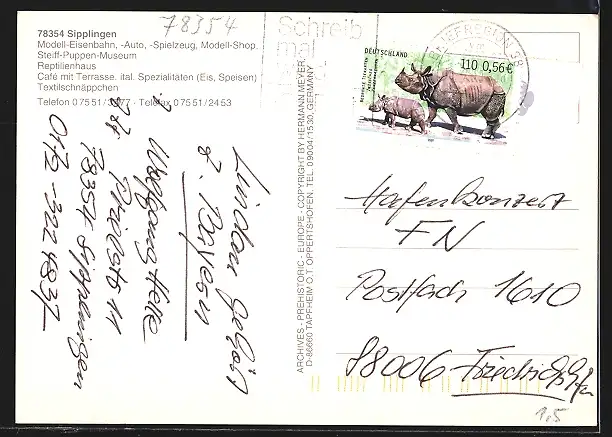 78354
78354 Sipplingen
Modell-Eisenbahn, -Auto, -Spielzeug, Modell-Shop.
Steiff-Puppen-Museum
Reptilienhaus
Café mit Terrasse. ital. Spezialitäten (Eis, Speisen)
Textilschnäppchen
Telefon 0 75 51/3777 · Telefax 0 75 51/24 53
Schreib
mal
DEUTSCHLAND
110 0,56€
ARCHIVES - PREHISTORIC - EUROPE - COPYRIGHT BY HERMANN MEYER,
D-86660 TAPFHEIM O.T. OPPERTSHOFEN, TEL. 09004/1530, GERMANY
Lindau gehört
z. Bayern
Wolfgang
11
78354 Sipplingen
0172-322 4837
Hafenkonzert
FN
Postfach 1610
88006 Friedrichshafen
1,5